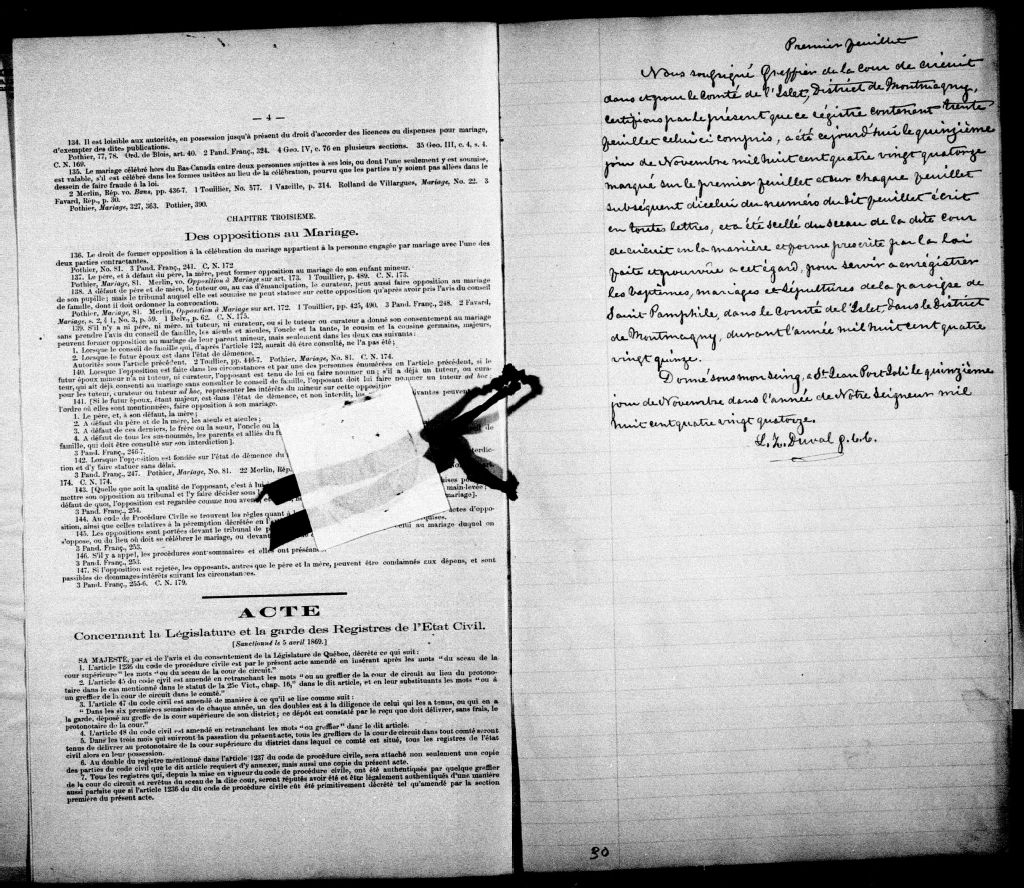 — 4 —
134. Il est loisible aux autorités, en possession jusqu'à présent du droit d'accorder des licences ou dispenses pour mariage,
d'exempter des dites publications.
Pothier, 77, 78. Ord. de Blois, art. 40. 2 Pand. Franç., 324. 4 Geo. IV, c. 76 en plusieurs sections. 35 Geo. III, c. 4, s. 4.
C. N. 169.
135. Le mariage célébré hors du Bas-Canada entre deux personnes sujettes à ses lois, ou dont l'une seulement y est soumise,
est valable, s'il est célébré dans les formes usitées au lieu de la célébration, pourvu que les parties n'y soient pas allées dans le
dessein de faire fraude à la loi.
2 Merlin, Rép. vo. Bans, pp. 436-7. 1 Toullier, No. 577. 1 Vazeille, p. 314. Rolland de Villargues, Mariage, No. 22. 3
Favard, Rép., p. 30.
Pothier, Mariage, 327, 363. Pothier, 390.
CHAPITRE TROISIÈME.
Des oppositions au Mariage.
136. Le droit de former opposition à la célébration du mariage appartient à la personne engagée par mariage avec l'une des
deux parties contractantes.
Pothier, No. 81. 3 Pand. Franç., 241. C. N. 172
137. Le père, et à défaut du père, la mère, peut former opposition au mariage de son enfant mineur.
Pothier, Mariage, 81. Merlin, vo. Opposition à Mariage sur art. 173. 1 Toullier, p. 489. C. N. 173.
138. A défaut de père et de mère, le tuteur ou, au cas d'émancipation, le curateur, peut aussi faire opposition au mariage
de son pupille; mais le tribunal auquel elle est soumise ne peut statuer sur cette opposition qu'après avoir pris l'avis du conseil
de famille, dont il doit ordonner la convocation.
Pothier, Mariage, 81. Merlin, Opposition à Mariage sur art. 172. 1 Toullier, pp. 425, 490. 3 Pand. Franç., 248. 2 Favard,
Mariage, s. 2, § 1, No. 3, p. 59. 1 Delv., p. 62. C. N. 175.
139. S'il n'y a ni père, ni mère, ni tuteur, ni curateur, ou si le tuteur ou curateur a donné son consentement au mariage
sans prendre l'avis du conseil de famille, les aïeuls et aïeules, l'oncle et la tante, le cousin et la cousine germains, majeurs,
peuvent former opposition au mariage de leur parent mineur, mais seulement dans les deux cas suivants:
1. Lorsque le conseil de famille qui, d'après l'article 122, aurait dû être consulté, ne l'a pas été;
2. Lorsque le futur époux est dans l'état de démence.
Autorités sous l'article précédent. 2 Toullier, pp. 446-7. Pothier, Mariage, No. 81. C. N. 174.
140. Lorsque l'opposition est faite dans les circonstances et par une des personnes énumérées en l'article précédent, si le
futur époux mineur n'a ni tuteur, ni curateur, l'opposant est tenu de lui en faire nommer un; s'il a déjà un tuteur, ou cura-
teur, qui ait déjà consenti au mariage sans consulter le conseil de famille, l'opposant doit lui faire nommer un tuteur ad hoc,
pour les tuteur, curateur ou tuteur ad hoc, représenter les intérêts du mineur sur cette opposition
141. [Si le futur époux, étant majeur, est dans l'état de démence, et non interdit, les suivantes peuvent
l'ordre où elles sont mentionnées, faire opposition à son mariage.
1. Le père, et, à son défaut, la mère;
2. A défaut du père et de la mère, les aïeuls et aïeules;
3. A défaut de ces derniers, le frère ou la sœur, l'oncle ou la
4. A défaut de tous les sus-nommés, les parents et alliés du
famille, qui doit être consulté sur son interdiction].
3 Pand. Franç., 246-7.
142. Lorsque l'opposition est fondée sur l'état de démence du
tion et d'y faire statuer sans délai.
3 Pand. Franç., 247. Pothier, Mariage, No. 81. 22 Merlin, Rép.
174. C. N. 174.
143. [Quelle que soit la qualité de l'opposant, c'est à lui
mettre son opposition au tribunal et l'y faire décider sous
défaut de quoi, l'opposition est regardée comme non avenue mariage].
3 Pand. Franç., 254.
144. Au code de Procédure Civile se trouvent les règles quant à actes d'oppo-
sition, ainsi que celles relatives à la péremption décrétée en
145. Les oppositions sont portées devant le tribunal de
s'oppose, ou du lieu où doit se célébrer le mariage, ou devant au mariage duquel on
3 Pand. Franç., 253.
146. S'il y a appel, les procédures sont sommaires et elles ont
3 Pand. Franç., 253.
147. Si l'opposition est rejetée, les opposants, autres que le père et la mère, peuvent être condamnés aux dépens, et sont
passibles de dommages-intérêts suivant les circonstances.
3 Pand. Franç., 255-6. C. N. 179.
ACTE
Concernant la Législature et la garde des Registres de l'Etat Civil.
[Sanctionné le 5 avril 1869.]
SA MAJESTÉ, par et de l'avis et du consentement de la Législature de Québec, décrète ce qui suit:
1. L'article 1236 du code de procédure civile est par le présent acte amendé en insérant après les mots "du sceau de la
cour supérieure" les mots "ou du sceau de la cour de circuit."
2. L'article 45 du code civil est amendé en retranchant les mots "ou au greffier de la cour de circuit au lieu du protono-
taire dans le cas mentionné dans le statut de la 25e Vict., chap. 16," dans le dit article, et en leur substituant les mots "ou à
un greffier de la cour de circuit dans le comté."
3. L'article 47 du code civil est amendé de manière à ce qu'il se lise comme suit:
"Dans les six premières semaines de chaque année, un des doubles est à la diligence de celui qui les a tenus, ou qui en a
la garde, déposé au greffe de la cour supérieure de son district; ce dépôt est constaté par le reçu que doit délivrer, sans frais, le
protonotaire de la cour."
4. L'article 48 du code civil est amendé en retranchant les mots "ou greffier" dans le dit article.
5. Dans les trois mois qui suivront la passation du présent acte, tous les greffiers de la cour de circuit dans tout comté seront
tenus de délivrer au protonotaire de la cour supérieure du district dans lequel ce comté est situé, tous les registres de l'état
civil alors en leur possession.
6. Au double du registre mentionné dans l'article 1237 du code de procédure civile, sera attaché non seulement une copie
des parties du code civil que le dit article requiert d'y annexer, mais aussi une copie du présent acte.
7. Tous les registres qui, depuis la mise en vigueur du code de procédure civile, ont été authentiqués par quelque greffier
de la cour de circuit et revêtus du sceau de la dite cour, seront réputés avoir été et être légalement authentiqués d'une manière
aussi parfaite que si l'article 1236 du dit code de procédure civile eût été primitivement décrété tel qu'amendé par la section
première du présent acte.
Premier feuillet
Nous soussigné Greffier de la Cour de circuit
dans et pour le Comté de l'Islet, District de Montmagny,
certifions par le présent que ce régistre contenant trente
feuillet celui ci compris, a été ce jourd'hui le quinzième
jour de Novembre mil huit cent quatre vingt quatorze
marqué sur le premier feuillet et sur chaque feuillet
subséquent d'icelui du numéro du dit feuillet écrit
en toutes lettres, et a été scellé du sceau de la dite cour
de circuit en la manière et forme prescrite par la Loi
faite et pourvue a cet égard, pour servir a enrégistrer
les baptèmes, mariages et sépultures de la paroisse de
Saint Pamphile, dans le Comté de l'Islet, dans le district
de Montmagny, durant l'année mil huit cent quatre
vingt quinze.
Donné sous mon seing, a St. Jean Port Joli le quinzième
jour de Novembre dans l'année de Notre Seigneur mil
huit cent quatre vingt quatorze.
L. Z. Duval g.c.c.
30